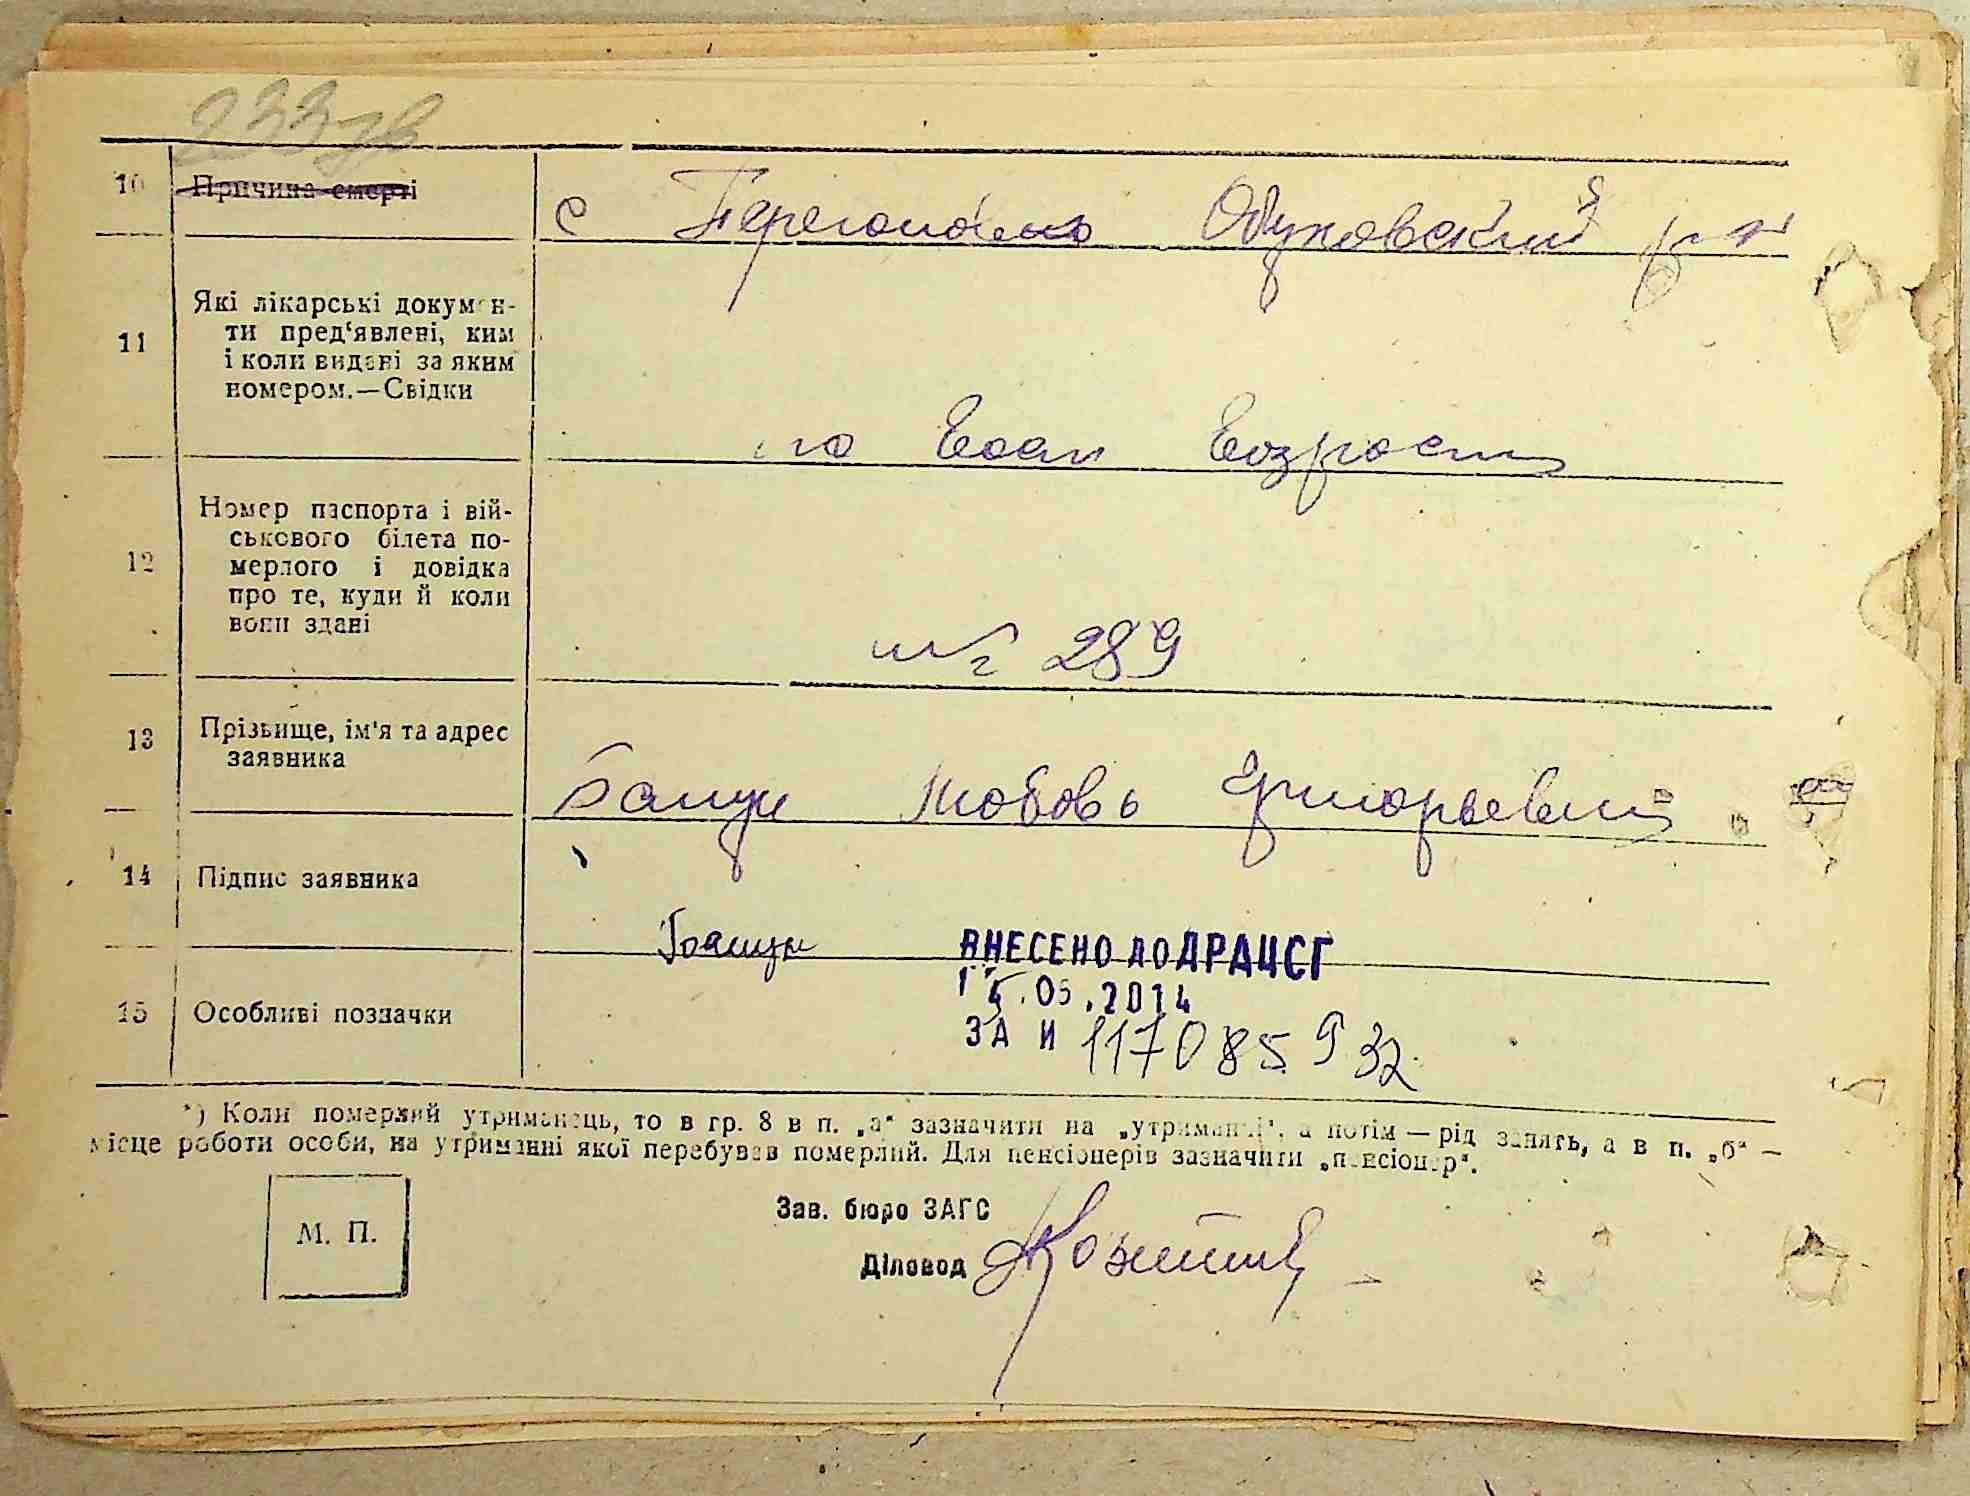 10 Причина смерті
с Перегоновка Обуховский р-н
11 Які лікарські докумен-
ти пред'явлені, ким
і коли видані за яким
номером.—Свідки
по Возрасту
12 Номер паспорта і вій-
ськового білета по-
мерлого і довідка
про те, куди й коли
вони здані
289
13 Прізвище, ім'я та адрес
заявника
Любовь Григорьевна
14 Підпис заявника
ВНЕСЕНО ДО ДРАЦСГ
.05.2014
15 Особливі позначки
ЗА И 117085932
*) Коли померлий утриманець, то в гр. 8 в п. „а“ зазначити на „утриманні“, а потім — рід занять, а в п. „б“ —
місце роботи особи, на утриманні якої перебував померлий. Для пенсіонерів зазначити „пенсіонер“.
М. П.
Зав. бюро ЗАГС
Діловод